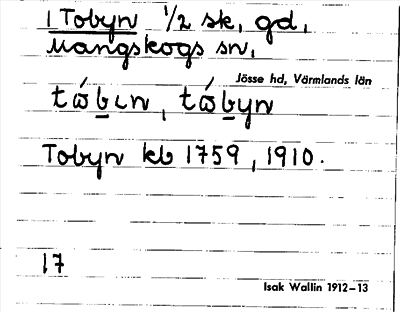 1 Tobyn 1/2 sk, gd,
Mangskogs sn,
Jösse hd, Värmlands län
tɷ́bɩn, tɷ́byn
Tobyn kb 1759, 1910.
17
Isak Wallin 1912–13